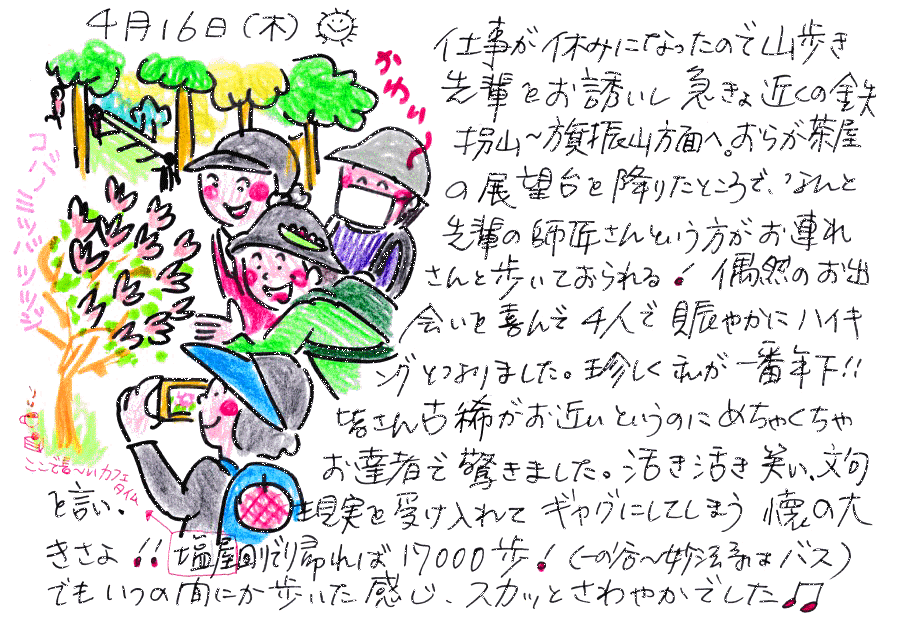 4月16日(木)
仕事が休みになったので山歩き
先輩をお誘いし 急きょ近くの鉄
拐山〜旗振山方面へ。おらが茶屋
の展望台を降りたところで、なんと
先輩の師匠さんという方がお連れ
さんと歩いておられる! 偶然のお出
会いを喜んで 4人で賑やかにハイキ
ングとなりました。珍しく私が一番年下!!
皆さん古稀がお近いというのにめちゃくちゃ
お達者で驚きました。活き活き笑い、文句
を言い、現実を受け入れて ギャグにしてしまう 懐の大
きさよ!! 塩屋回りで帰れば 17000歩! (一の谷〜妙法寺はバス)
でもいつの間にか歩いた感じ、スカッとさわやかでした♫
かわいい〜
コバノミツバツツジ
ここで る〜いカフェ
タイム